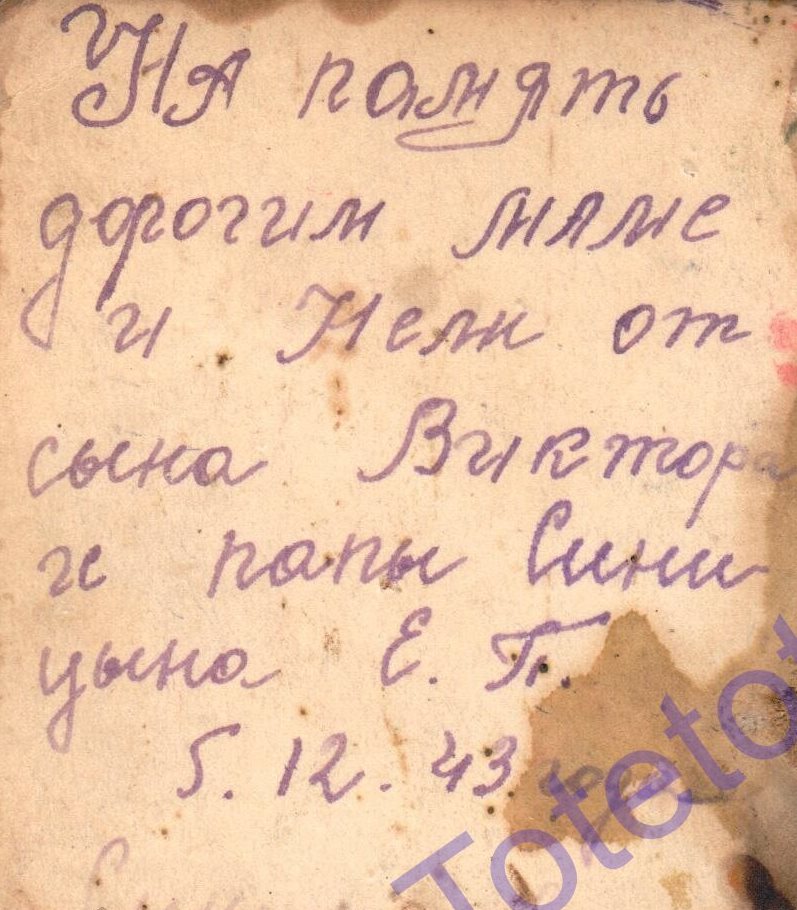 На память
дорогим маме
и Нели от
сына Виктора
и папы Сини
цына Е. П.
5. 12. 43 года
Toteto